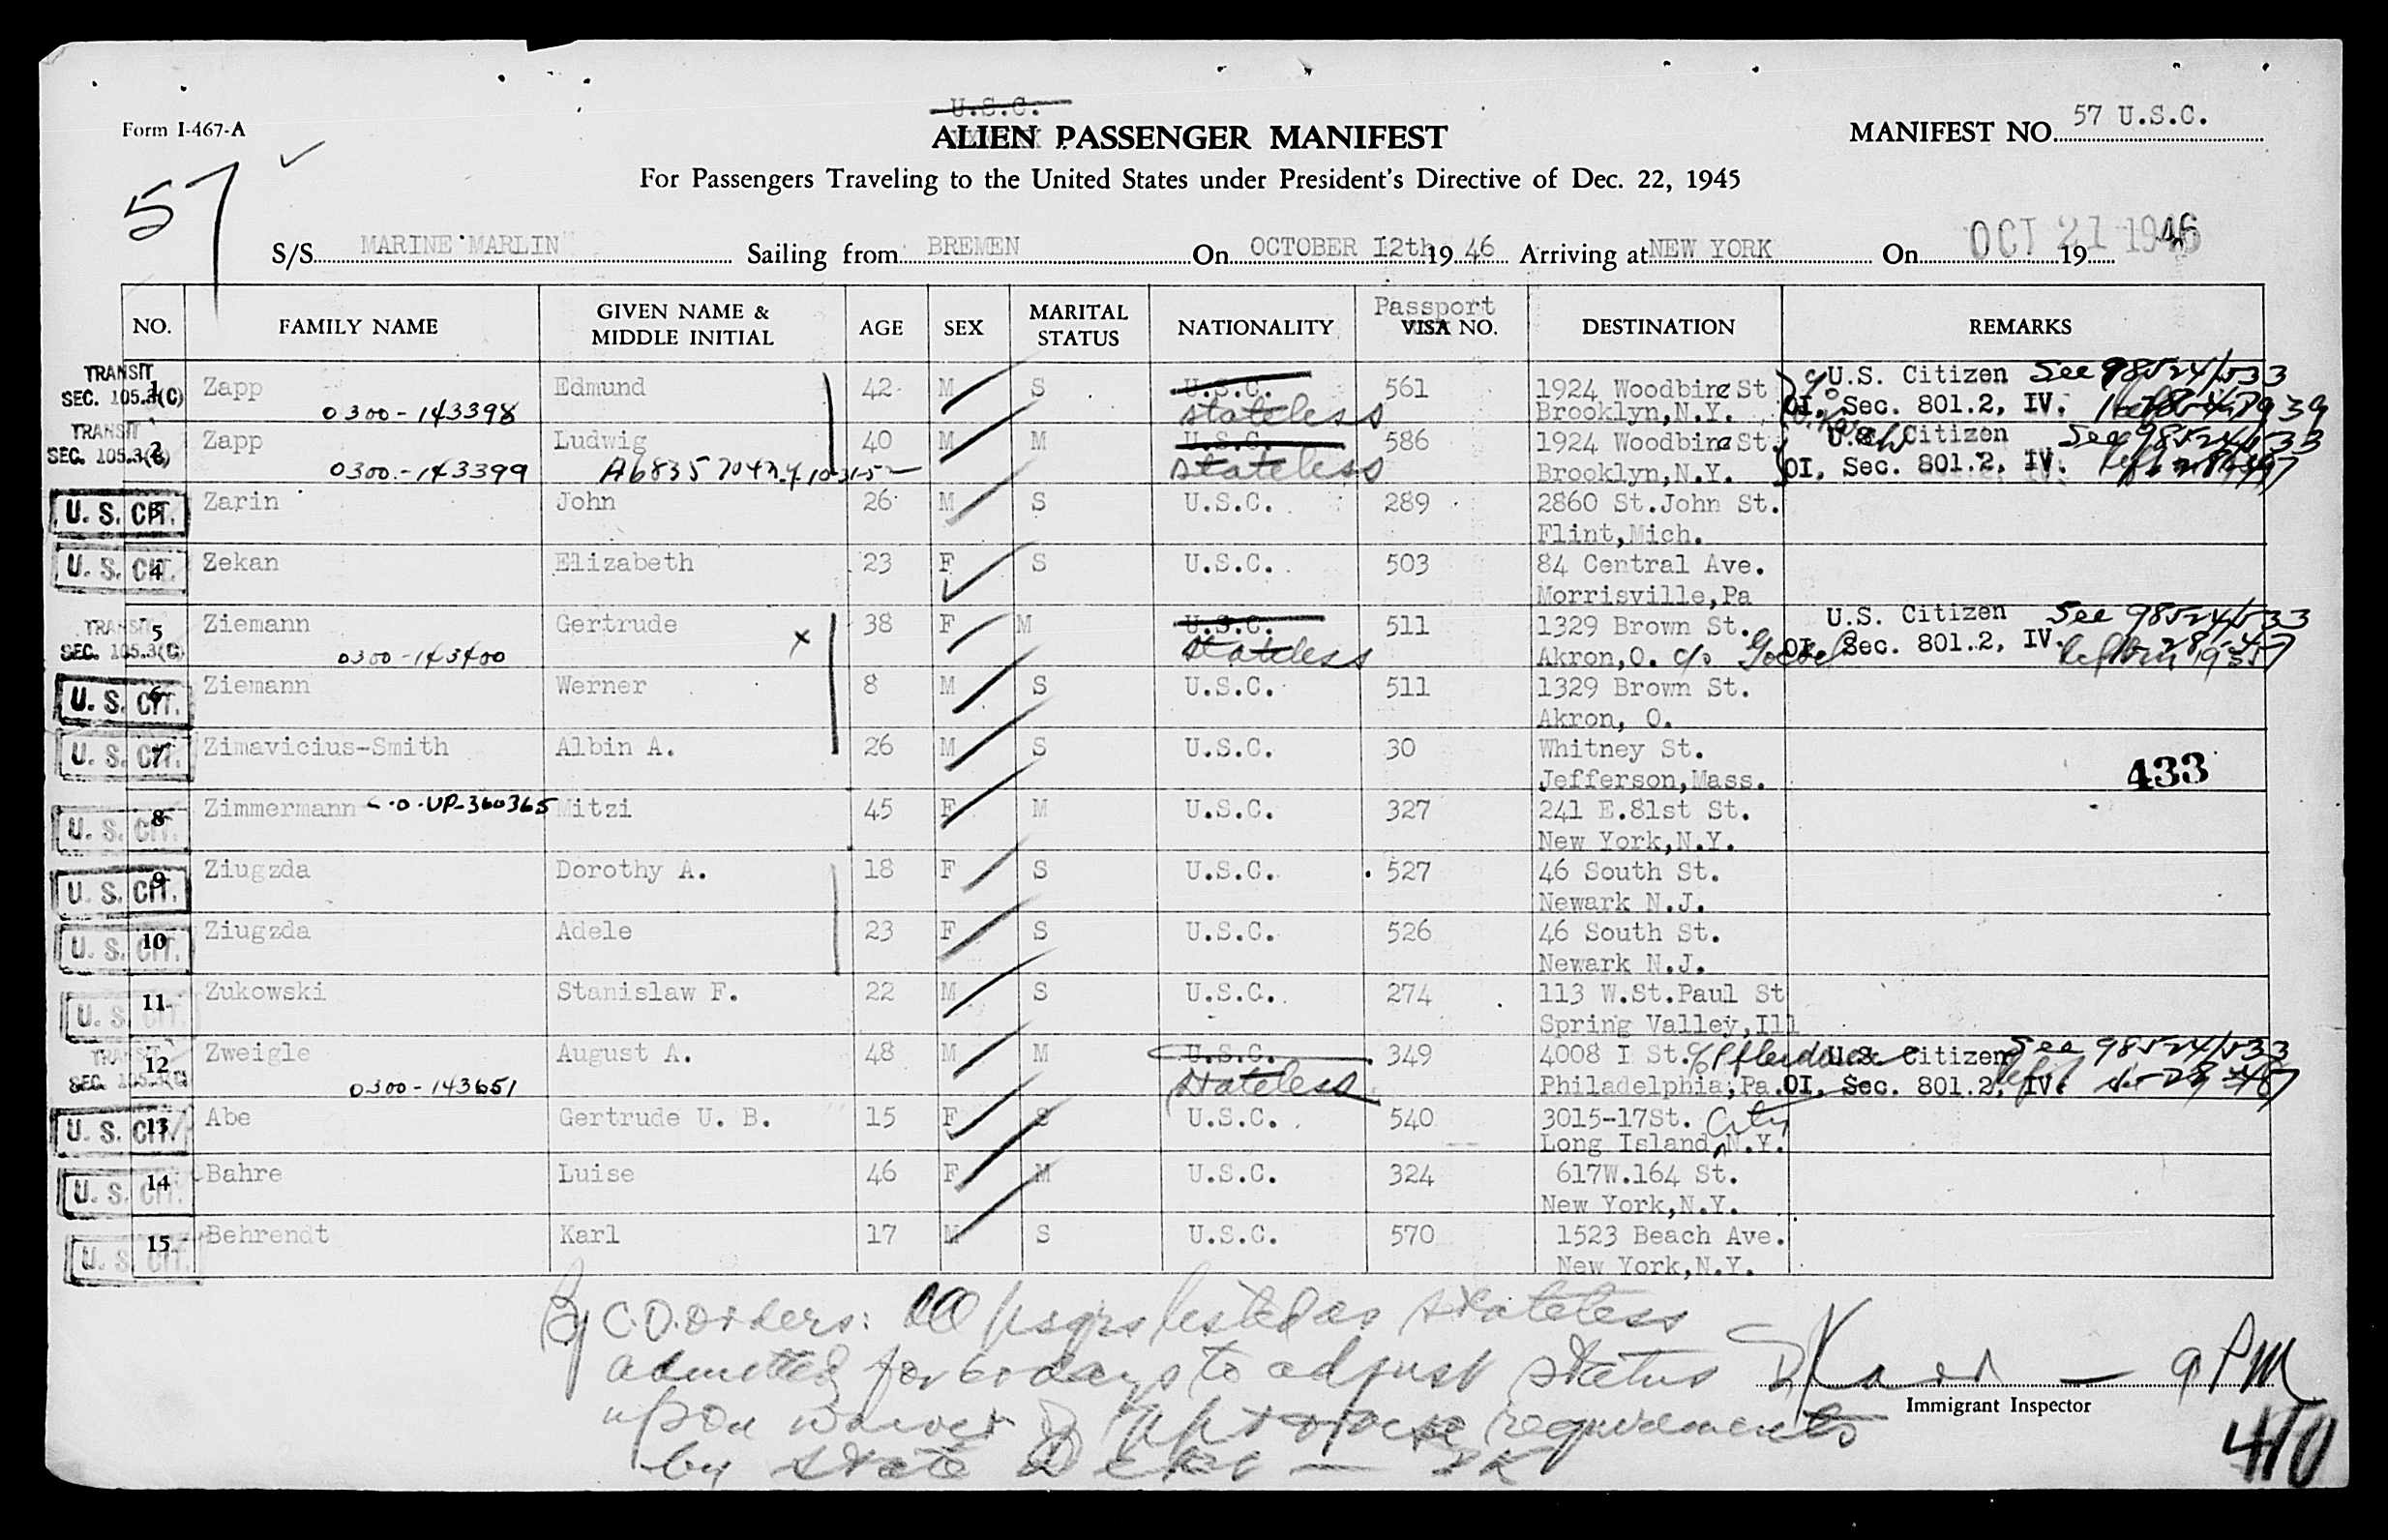 U.S.C.
Form I-467-A
ALIEN PASSENGER MANIFEST
MANIFEST NO. 57 U.S.C.
57
For Passengers Traveling to the United States under President's Directive of Dec. 22, 1945
S/S MARINE MARLIN Sailing from BREMEN On OCTOBER 12th 19 46 Arriving at NEW YORK On OCT 21 1946 19
NO. FAMILY NAME GIVEN NAME & MIDDLE INITIAL AGE SEX MARITAL STATUS NATIONALITY Passport VISA NO. DESTINATION REMARKS
TRANSIT SEC. 105.3(C) 1 Zapp Edmund 42 M S U.S.C. 561 1924 Woodbine St U.S. Citizen See 98524/533
0300-143398 stateless Brooklyn,N.Y. OI, Sec. 801.2, IV.
TRANSIT SEC. 105.3(C) 2 Zapp Ludwig 40 M M U.S.C. 586 1924 Woodbine St. U.S. Citizen See 98524/533
0300-143399 stateless Brooklyn,N.Y. OI, Sec. 801.2, IV.
U. S. CIT. 3 Zarin John 26 M S U.S.C. 289 2860 St.John St.
Flint,Mich.
U. S. CIT. 4 Zekan Elizabeth 23 F S U.S.C. 503 84 Central Ave.
Morrisville,Pa
TRANSIT SEC. 105.3(C) 5 Ziemann Gertrude x 38 F M U.S.C. 511 1329 Brown St. U.S. Citizen See 98524/533
0300-143400 stateless Akron,O. c/o Goebel OI, Sec. 801.2, IV.
U. S. CIT. 6 Ziemann Werner 8 M S U.S.C. 511 1329 Brown St.
Akron, O.
U. S. CIT. 7 Zimavicius-Smith Albin A. 26 M S U.S.C. 30 Whitney St.
Jefferson,Mass. 433
U. S. CIT. 8 Zimmermann C.O.UP-360365 Mitzi 45 F M U.S.C. 327 241 E.81st St.
New York,N.Y.
U. S. CIT. 9 Ziugzda Dorothy A. 18 F S U.S.C. 527 46 South St.
Newark N.J.
U. S. CIT. 10 Ziugzda Adele 23 F S U.S.C. 526 46 South St.
Newark N.J.
U. S. CIT. 11 Zukowski Stanislaw F. 22 M S U.S.C. 274 113 W.St.Paul St
Spring Valley,Ill
TRANSIT SEC. 105.3(C) 12 Zweigle August A. 48 M M U.S.C. 349 4008 I St. c/o U.S. Citizen See 98524/533
0300-143651 stateless Philadelphia,Pa. OI, Sec. 801.2, IV.
U. S. CIT. 13 Abe Gertrude U. B. 15 F S U.S.C. 540 3015-17St. City
Long Island N.Y.
U. S. CIT. 14 Bahre Luise 46 F M U.S.C. 324 617W.164 St.
New York,N.Y.
U. S. CIT. 15 Behrendt Karl 17 M S U.S.C. 570 1523 Beach Ave.
New York,N.Y.
By C.O. orders: All psgrs listed as stateless
admitted for 60 days to adjust status
upon waiver of passport requirements
by State Dept — 9 PM
Immigrant Inspector
410